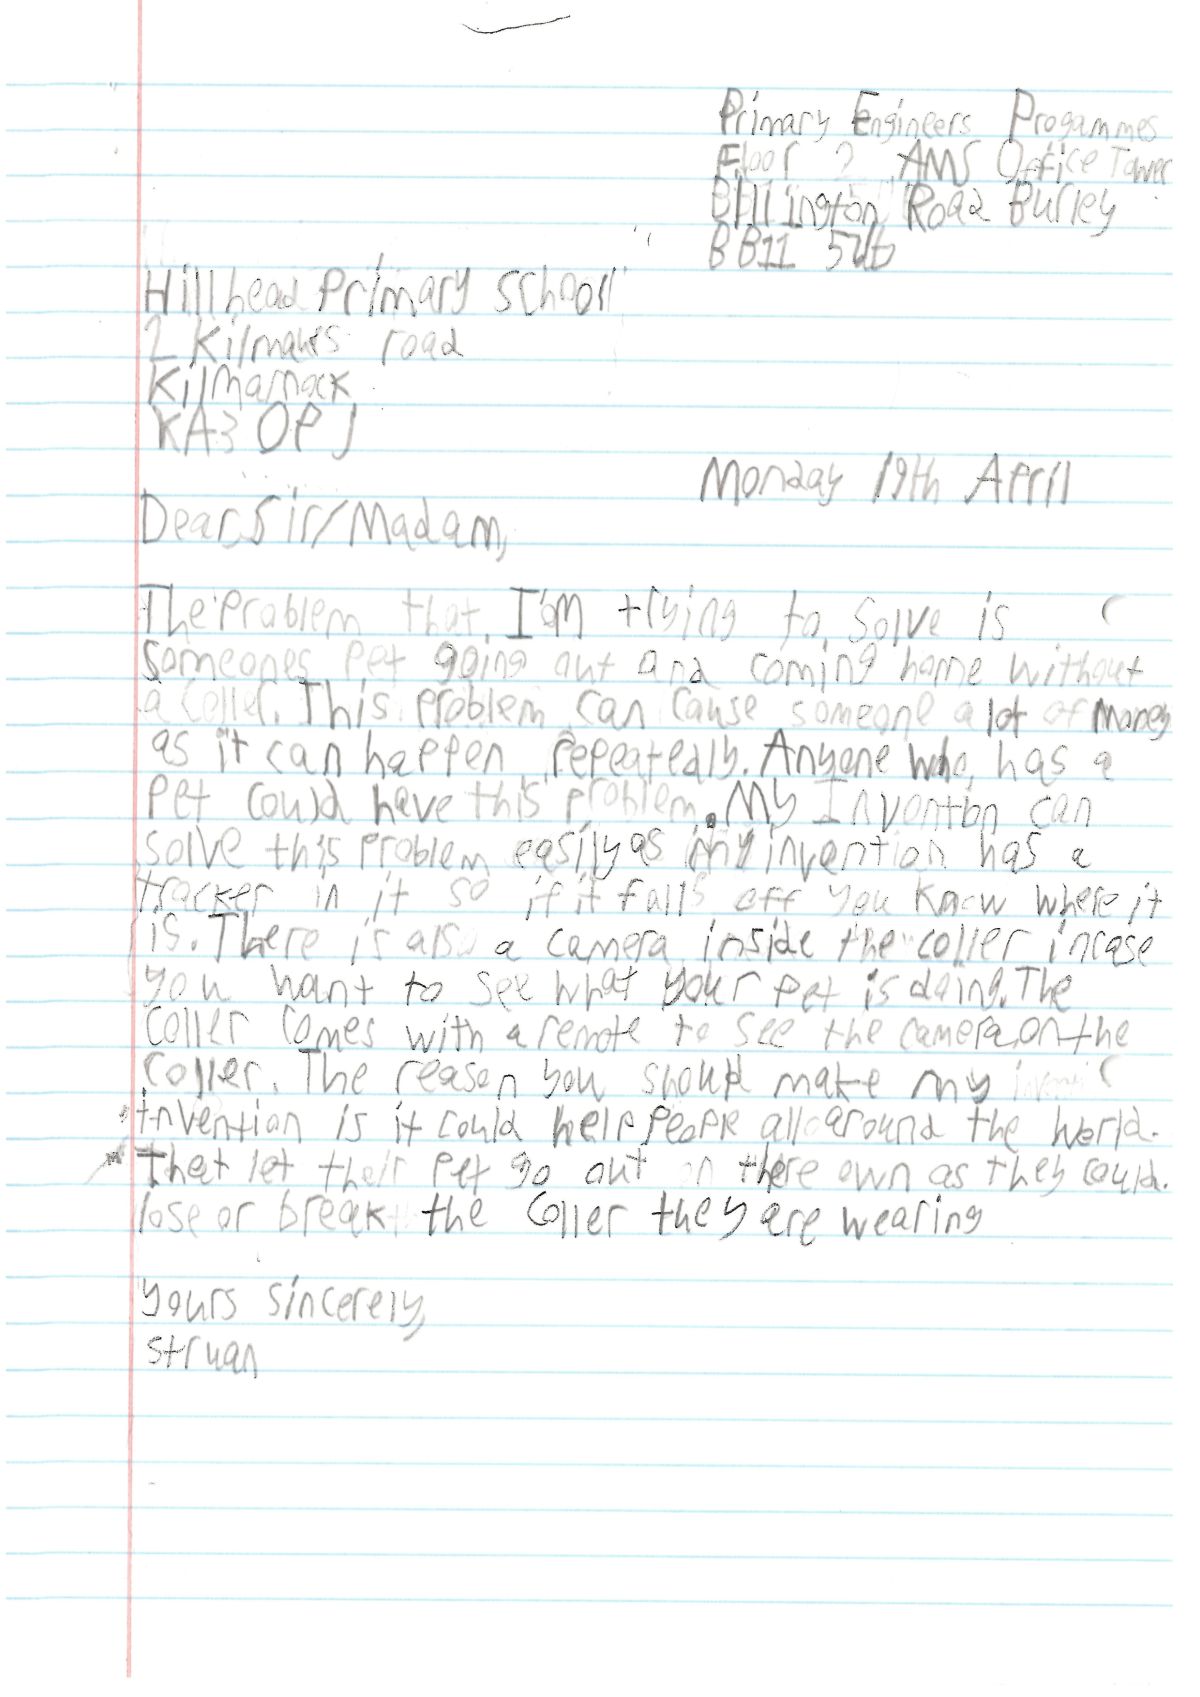 Primary Engineers Progammes
Floor 2 AMS Office Tower
Billington Road Burley
BB11 5ub
Hillhead Primary School
2 Kilmahs road
Kilmarnock
KA3 0PJ
Monday 19th April
Dear Sir/Madam,
The problem that I'am trying to solve is
someones pet going out and coming home without
a coller. This problem can cause someone a lot of money
as it can happen repeatedly. Anyone who has a
pet could have this problem. My Invention can
solve this problem easily as my invention has a
tracker in it so if it falls off you know where it
is. There is also a camera inside the coller incase
you want to see what your pet is doing. The
coller comes with a remote to see the camera on the
coller. The reason you should make my
invention is it could help people all around the world.
That let their pet go out on there own as they could.
lose or break the coller they are wearing
yours sincerely,
Struan